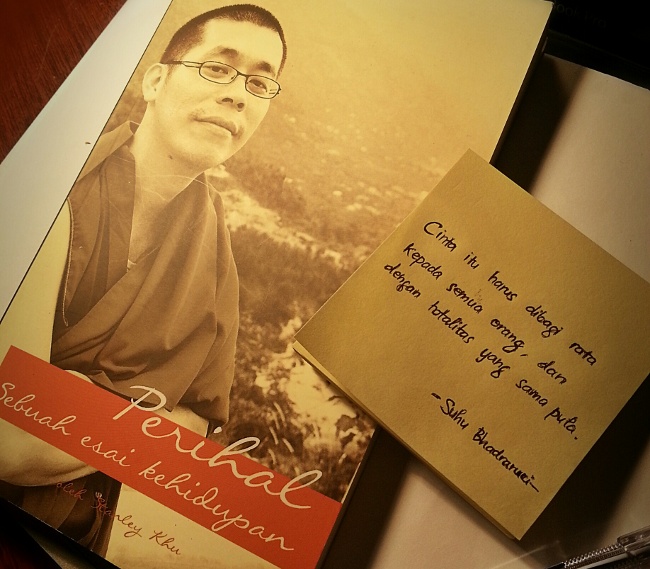 Perihal
Sebuah esai kehidupan
oleh Stanley Khu
Cinta itu harus dibagi rata
kepada semua orang, dan
dengan totalitas yang sama pula.
-Suhu Bhadraruci-